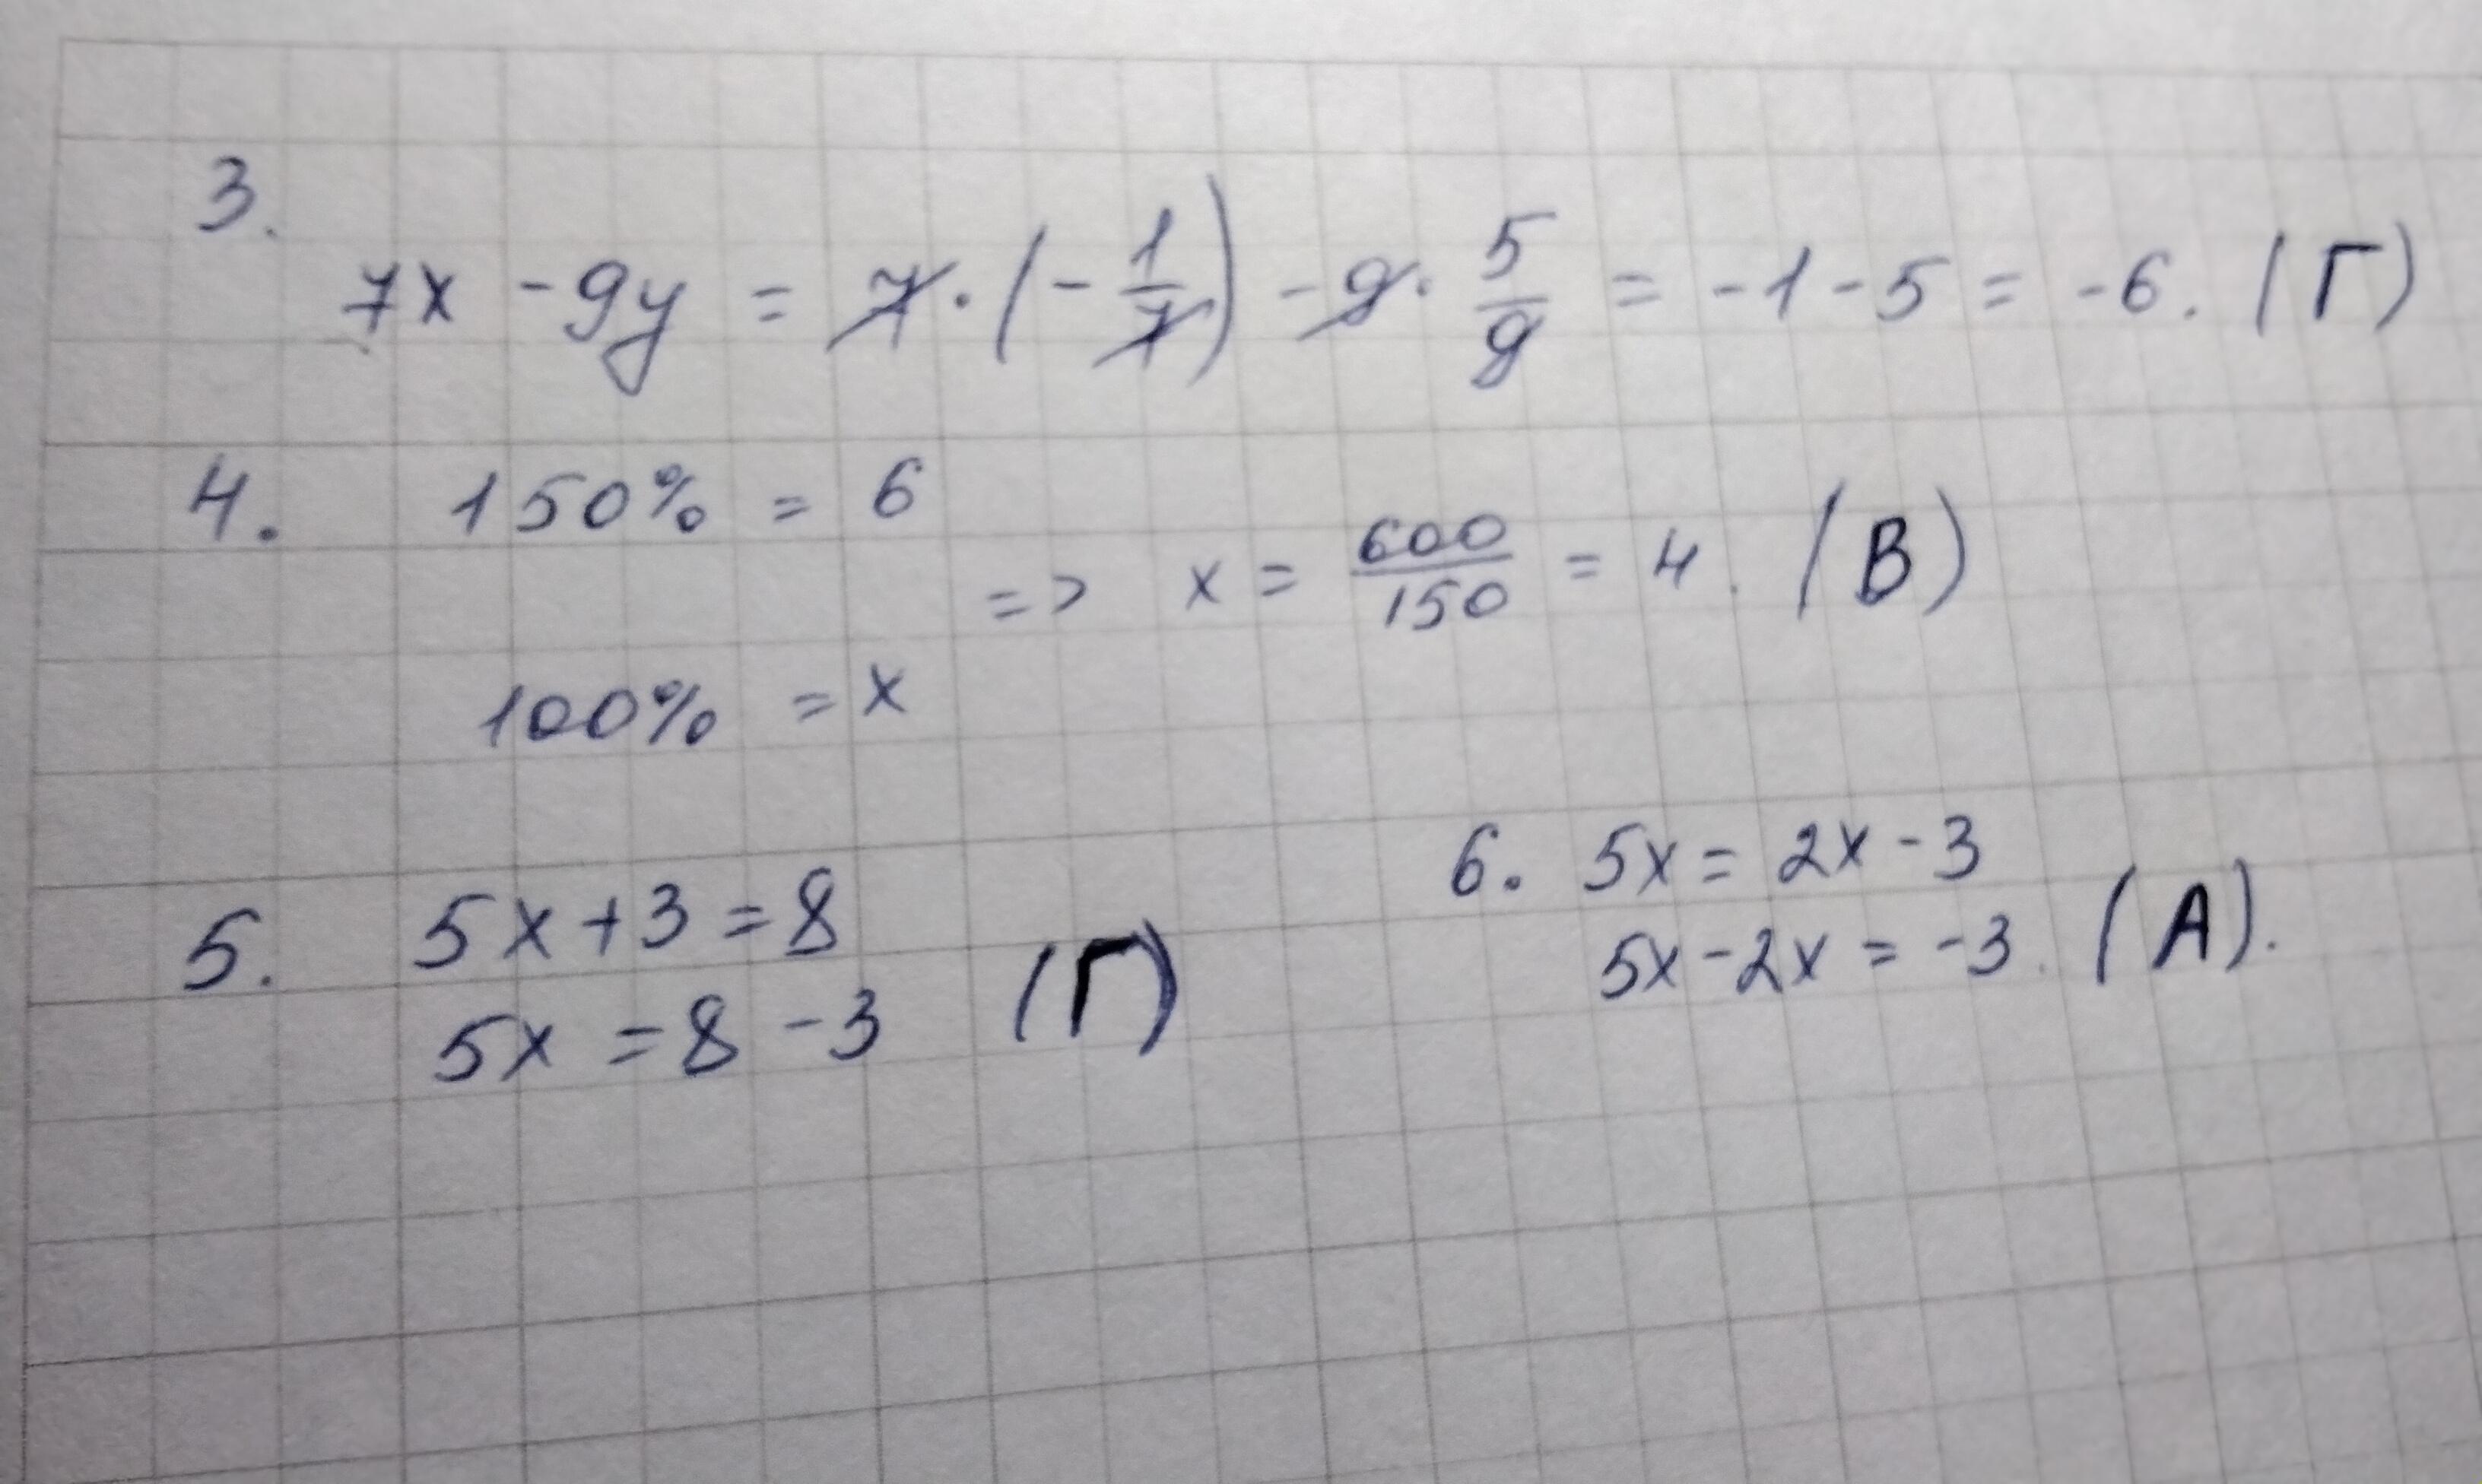 3.
7x - 9y = 7 · (-1/7) - 9 · 5/9 = -1 - 5 = -6. (Г)
4. 150% = 6
=> x = 600/150 = 4. (В)
100% = x
5. 5x + 3 = 8
5x = 8 - 3 (Г)
6. 5x = 2x - 3
5x - 2x = -3. (А).